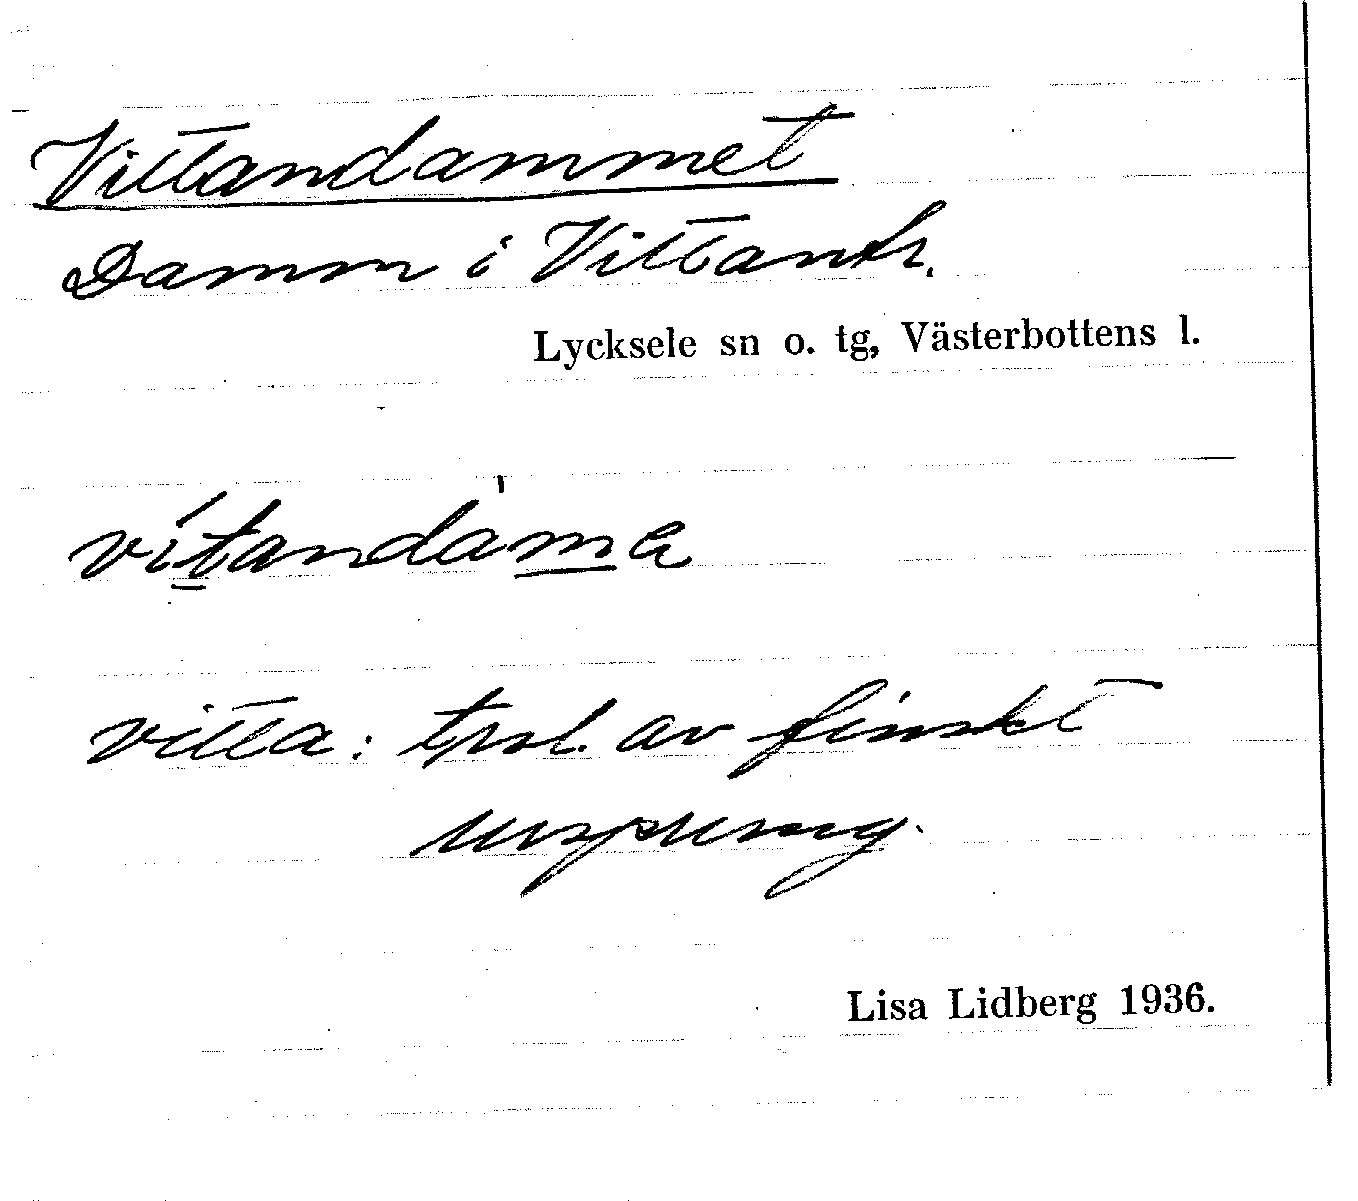 Vittandammet
Damm i Vittantr.
Lycksele sn o. tg, Västerbottens l.
vitandama
vitta: trol. av finskt
ursprung.
Lisa Lidberg 1936.